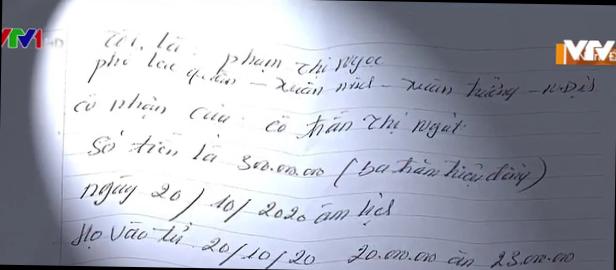 VTV1 HD
VTV
Tôi là: phạm thị Ngọc
phố Lạc quần - xuân ninh - xuân trường - N Định
có nhận của cô trần thị Ngát
Số tiền là 300.000.000 (ba trăm triệu đồng)
ngày 20/10/2020 âm lịch
Họ vào từ 20/10/20 20.000.000 ăn 23.000.000